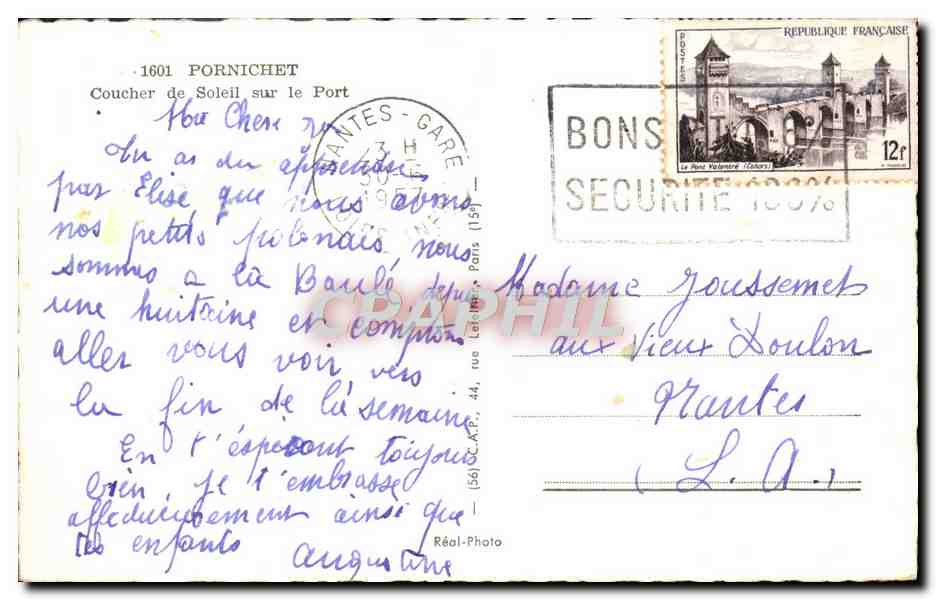 1601 PORNICHET
Coucher de Soleil sur le Port
Ma Chere
Tu as du apprendre
par Elise que nous avons
nos petits polonais, nous
sommes a la Baule, depuis
une huitaine et comptons
aller vous voir vers
la fin de la semaine
En t'espérant toujours
bien, je t'embrasse
affectueusement ainsi que
les enfants
Augustine
NANTES-GARE
13 H
BONS
SECURITE 100%
REPUBLIQUE FRANÇAISE
POSTES
Le Pont Valentré (Cahors)
12f
Madame Joussemet
aux Vieux Doulon
Nantes
(L. A.)
(56) C.A.P., 44, rue Letellier, Paris (15e)
Réal-Photo
CPAPHIL